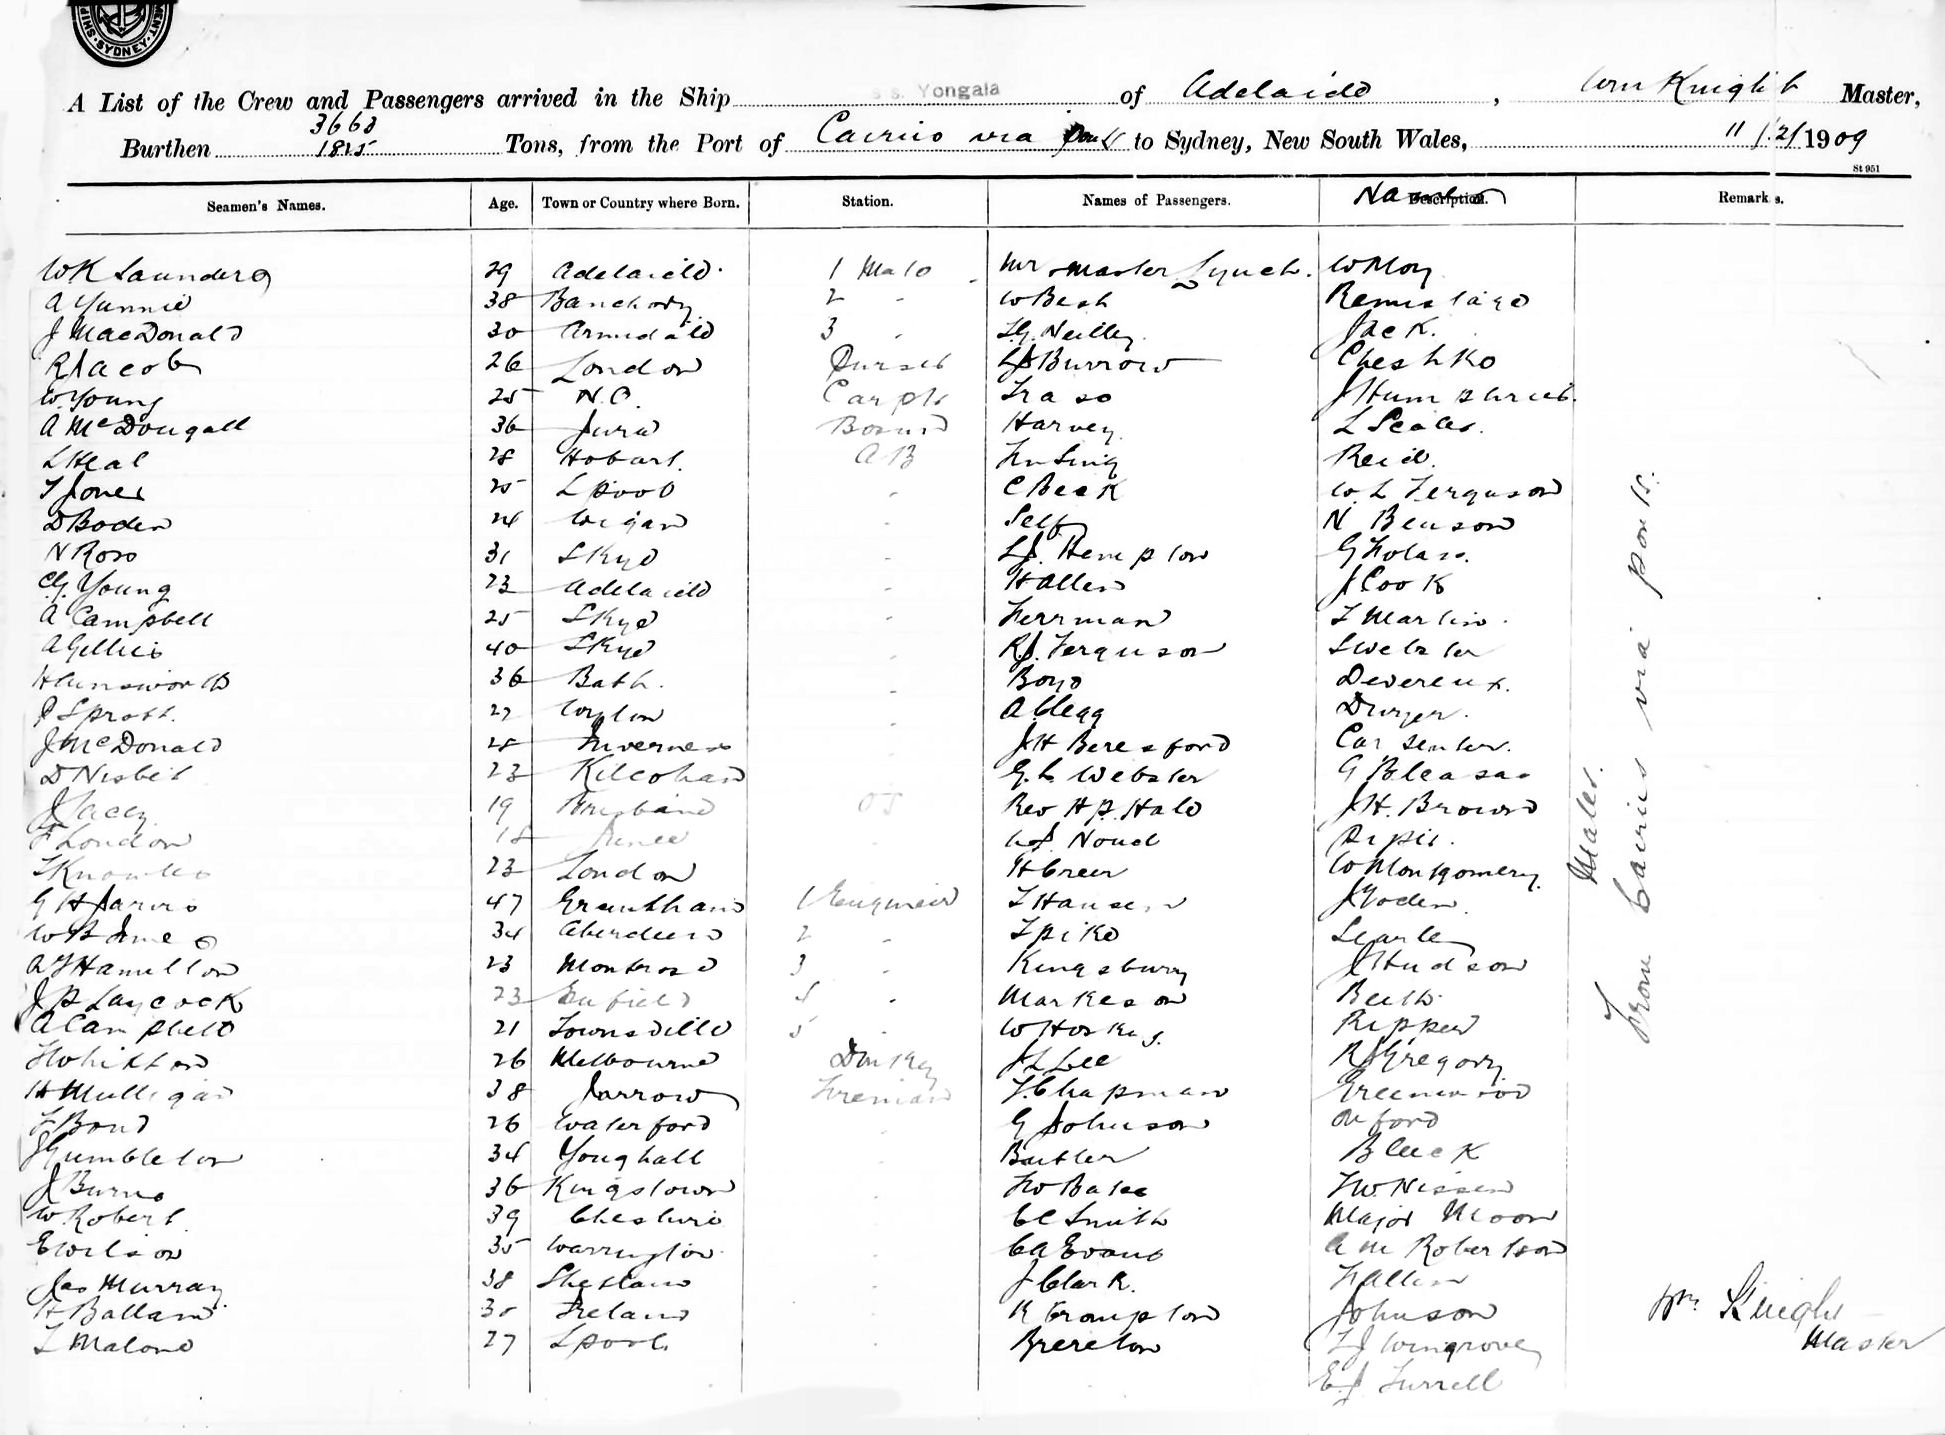 SHIP SYDNEY MENT
A List of the Crew and Passengers arrived in the Ship s.s. Yongala of Adelaide, Wm Knight Master,
Burthen 3663 1825 Tons, from the Port of Cairns via Ports to Sydney, New South Wales, 11/2/1909
St 951
Seamen's Names. Age. Town or Country where Born. Station. Names of Passengers. Names Description. Remarks.
W K Saunders 29 Adelaide. 1 Mate Mr Master Lynch. W Moy
A Yunnie 38 Banchory 2 - W Besh
J MacDonald 30 Armidale 3 - Neilley Jack.
R Jacob 26 London Purser Burrow
W. Young 25 N.C. Carptr J Humphries.
A McDougall 36 Jura Bosun Harvey L Scales.
L Heal 28 Hobart. A B Reid.
T Jones 25 L pool - C Beck W. L Ferguson
D Boden 24 Wigan - Self N Benson
N Ross 31 Skye - Hampton
Young 23 Adelaide - H Allen J Cook
A Campbell 25 Skye - Herrman T Martin.
A Gillies 40 Skye - R.J. Ferguson S Webster
H Ainsworth 36 Bath. - Boyd Devereux.
P Sprott. 27 - A Clegg Dwyer.
J McDonald 28 Inverness - J H Beresford Carpenter.
D Nisbet 23 - Webster
J Lacey 19 Brisbane O S Rev H P. Hale J H. Brown
F London 18 Noud
T Knowles 23 London H Greer W Montgomery
G H Jarvis 47 Grantham 1 Engineer T Hansen
W B 34 Aberdeen 2 - T Pike Searle
A J Hamilton 23 Montrose 3 - Kingsbury J Hudson
J P Laycock 23 Enfield 4 - Markeson
A Campbell 21 Townsville 5 - W Hoskins
26 Melbourne Donkey J L Lee R J Gregory
H Mulligan 38 Jarrow Fireman T. Chapman Greenwood
F Bond 26 Waterford G Johnson Orford
J Gumbleton 34 Youghall Butler Bleeck
J Burns 36 Kingstown Nissen
W Robert 39 Cheshire C C Smith Major Moon
E Wilson 35 Warrington C A Evans A M Robertson
Jas Murray 38 Shetland J Clark.
H Ballam 30 Ireland Crompton Johnson
T Malone 27 L pool. Brereton Wingrove
E J Turrell
Males.
From Cairns via ports.
Wm Knight
Master